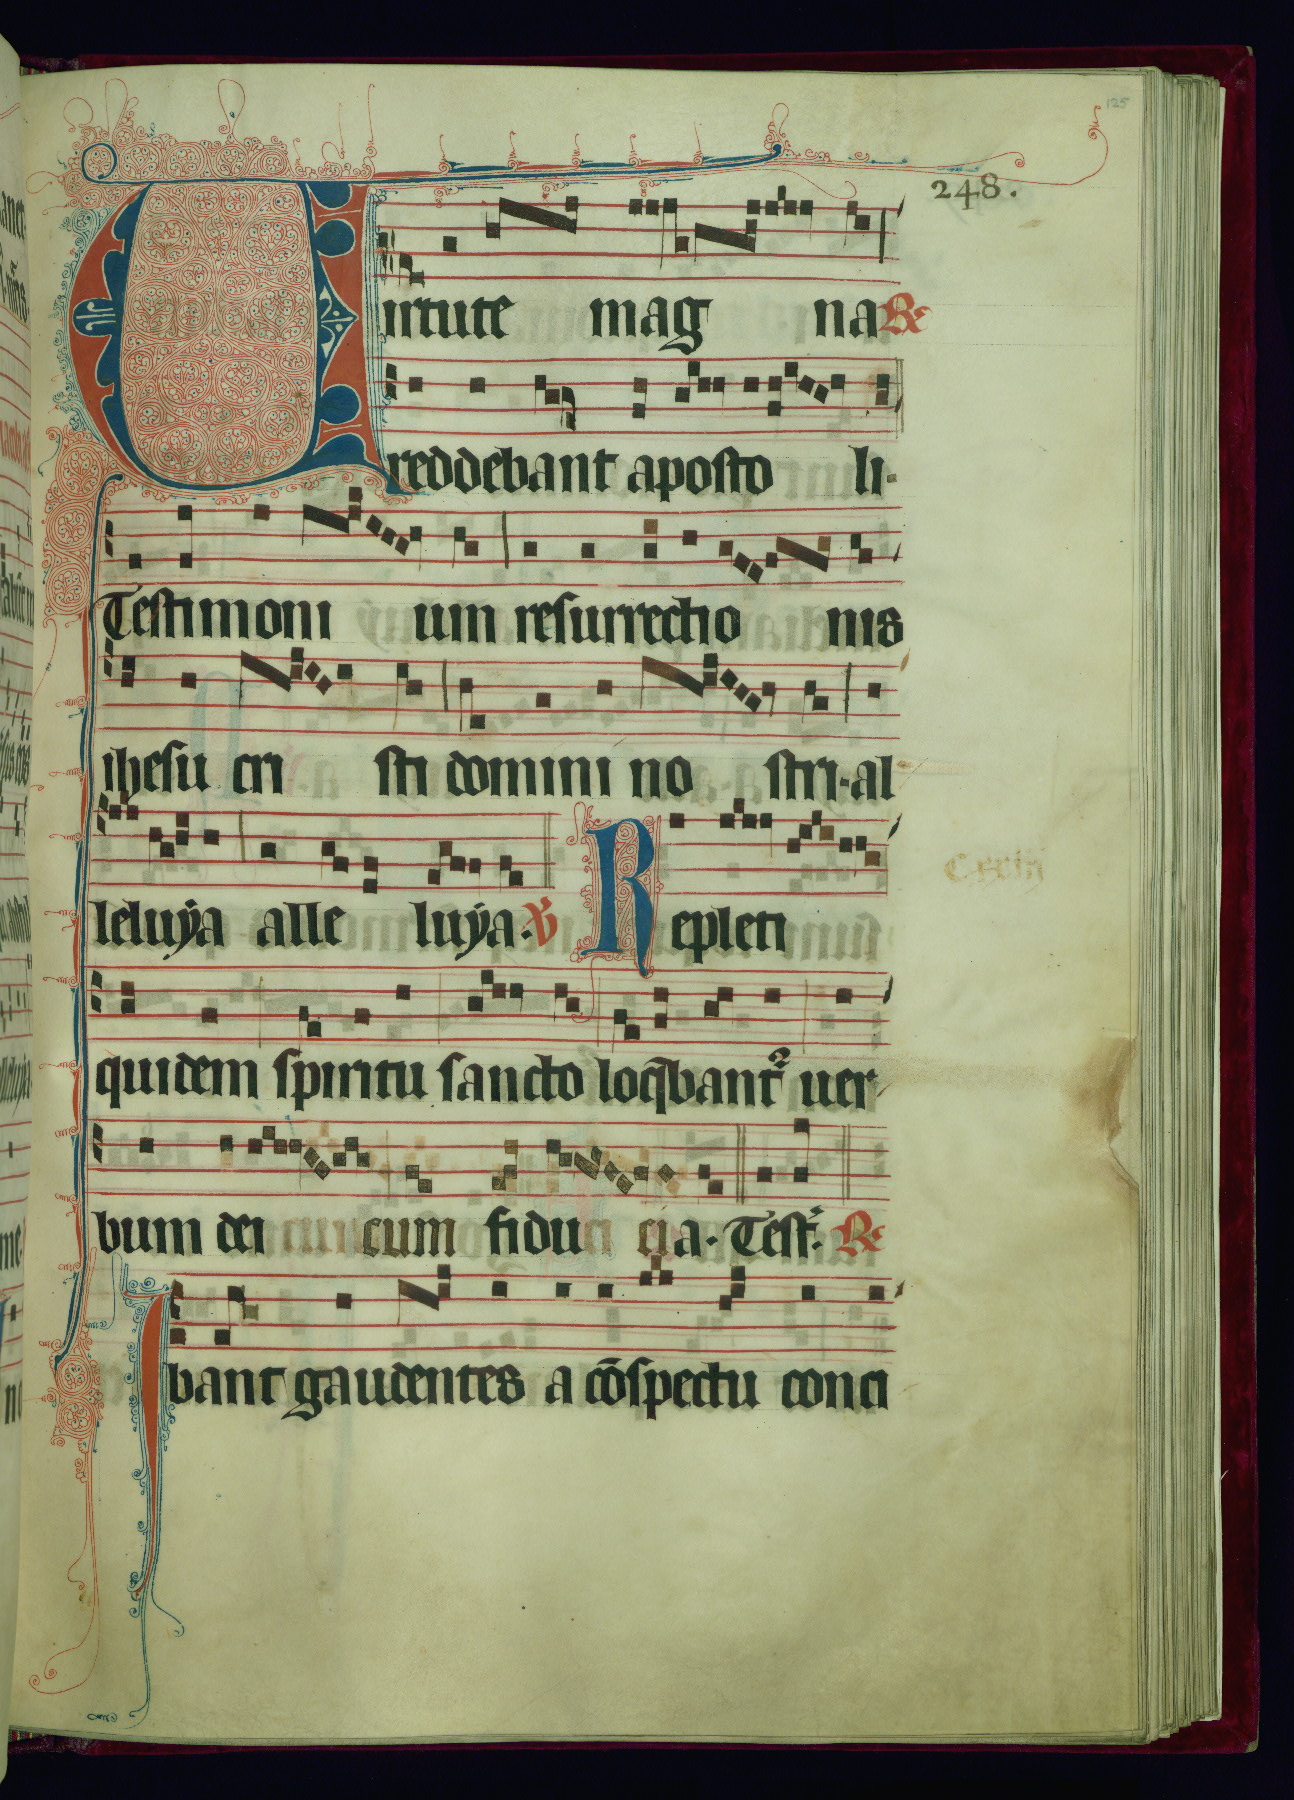 125
248.
Uirtute mag na R
reddebant aposto li·
Testimoni um resurrectio nis
ihesu cri sti domini no stri·al
leluya alle luya·V Repleti
quidem spiritu sancto loqbant2 uer
bum dei cum fiduci cia· Test· R
Ibant gaudentes a cōspectu conci